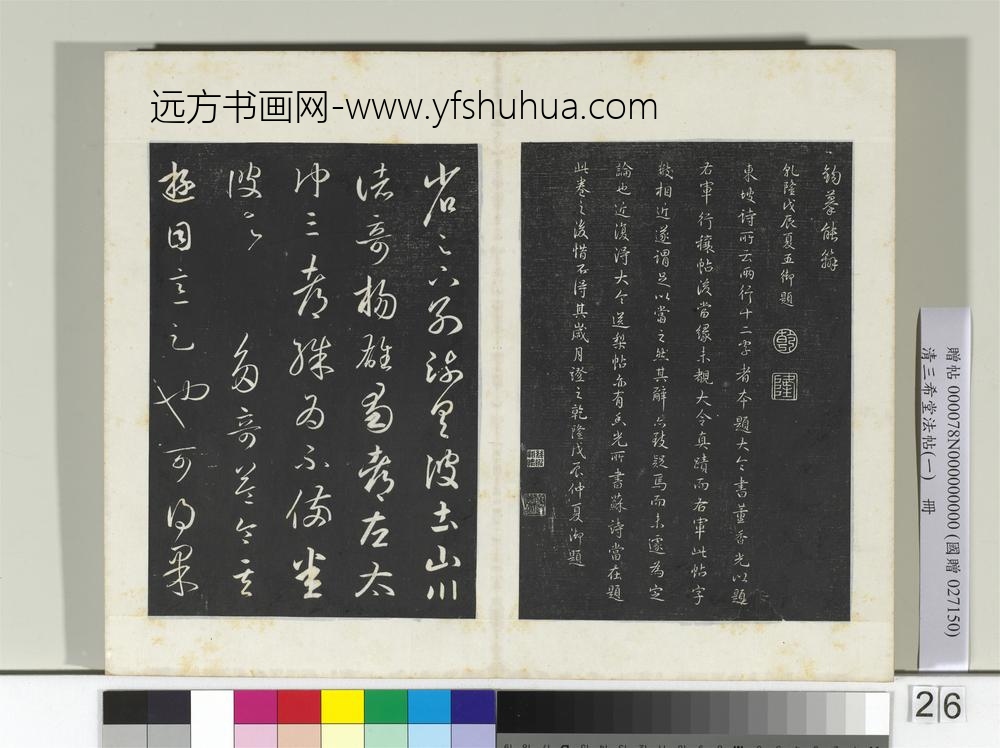 远方书画网-www.yfshuhua.com
鉤摹能
乾隆戊辰夏五御題
乾
隆
東坡詩所云兩行十二字者本題大令書董香光以題
右軍行穰帖後當緣未覩大令真蹟而右軍此帖字
數相近遂謂足以當之然其辭亦致疑焉而未遽為定
論也近復得大令送梨帖亦有香光所書蘇詩當在題
此卷之後惜不得其歲月證之乾隆戊辰仲夏御題
省足下別疏具彼土山川
諸奇揚雄蜀都左太
沖三都殊為不備悉
彼故 多奇益令其
遊目意足也可得果
贈帖 000078N000000000 (國贈 027150)
清三希堂法帖(一) 冊
26